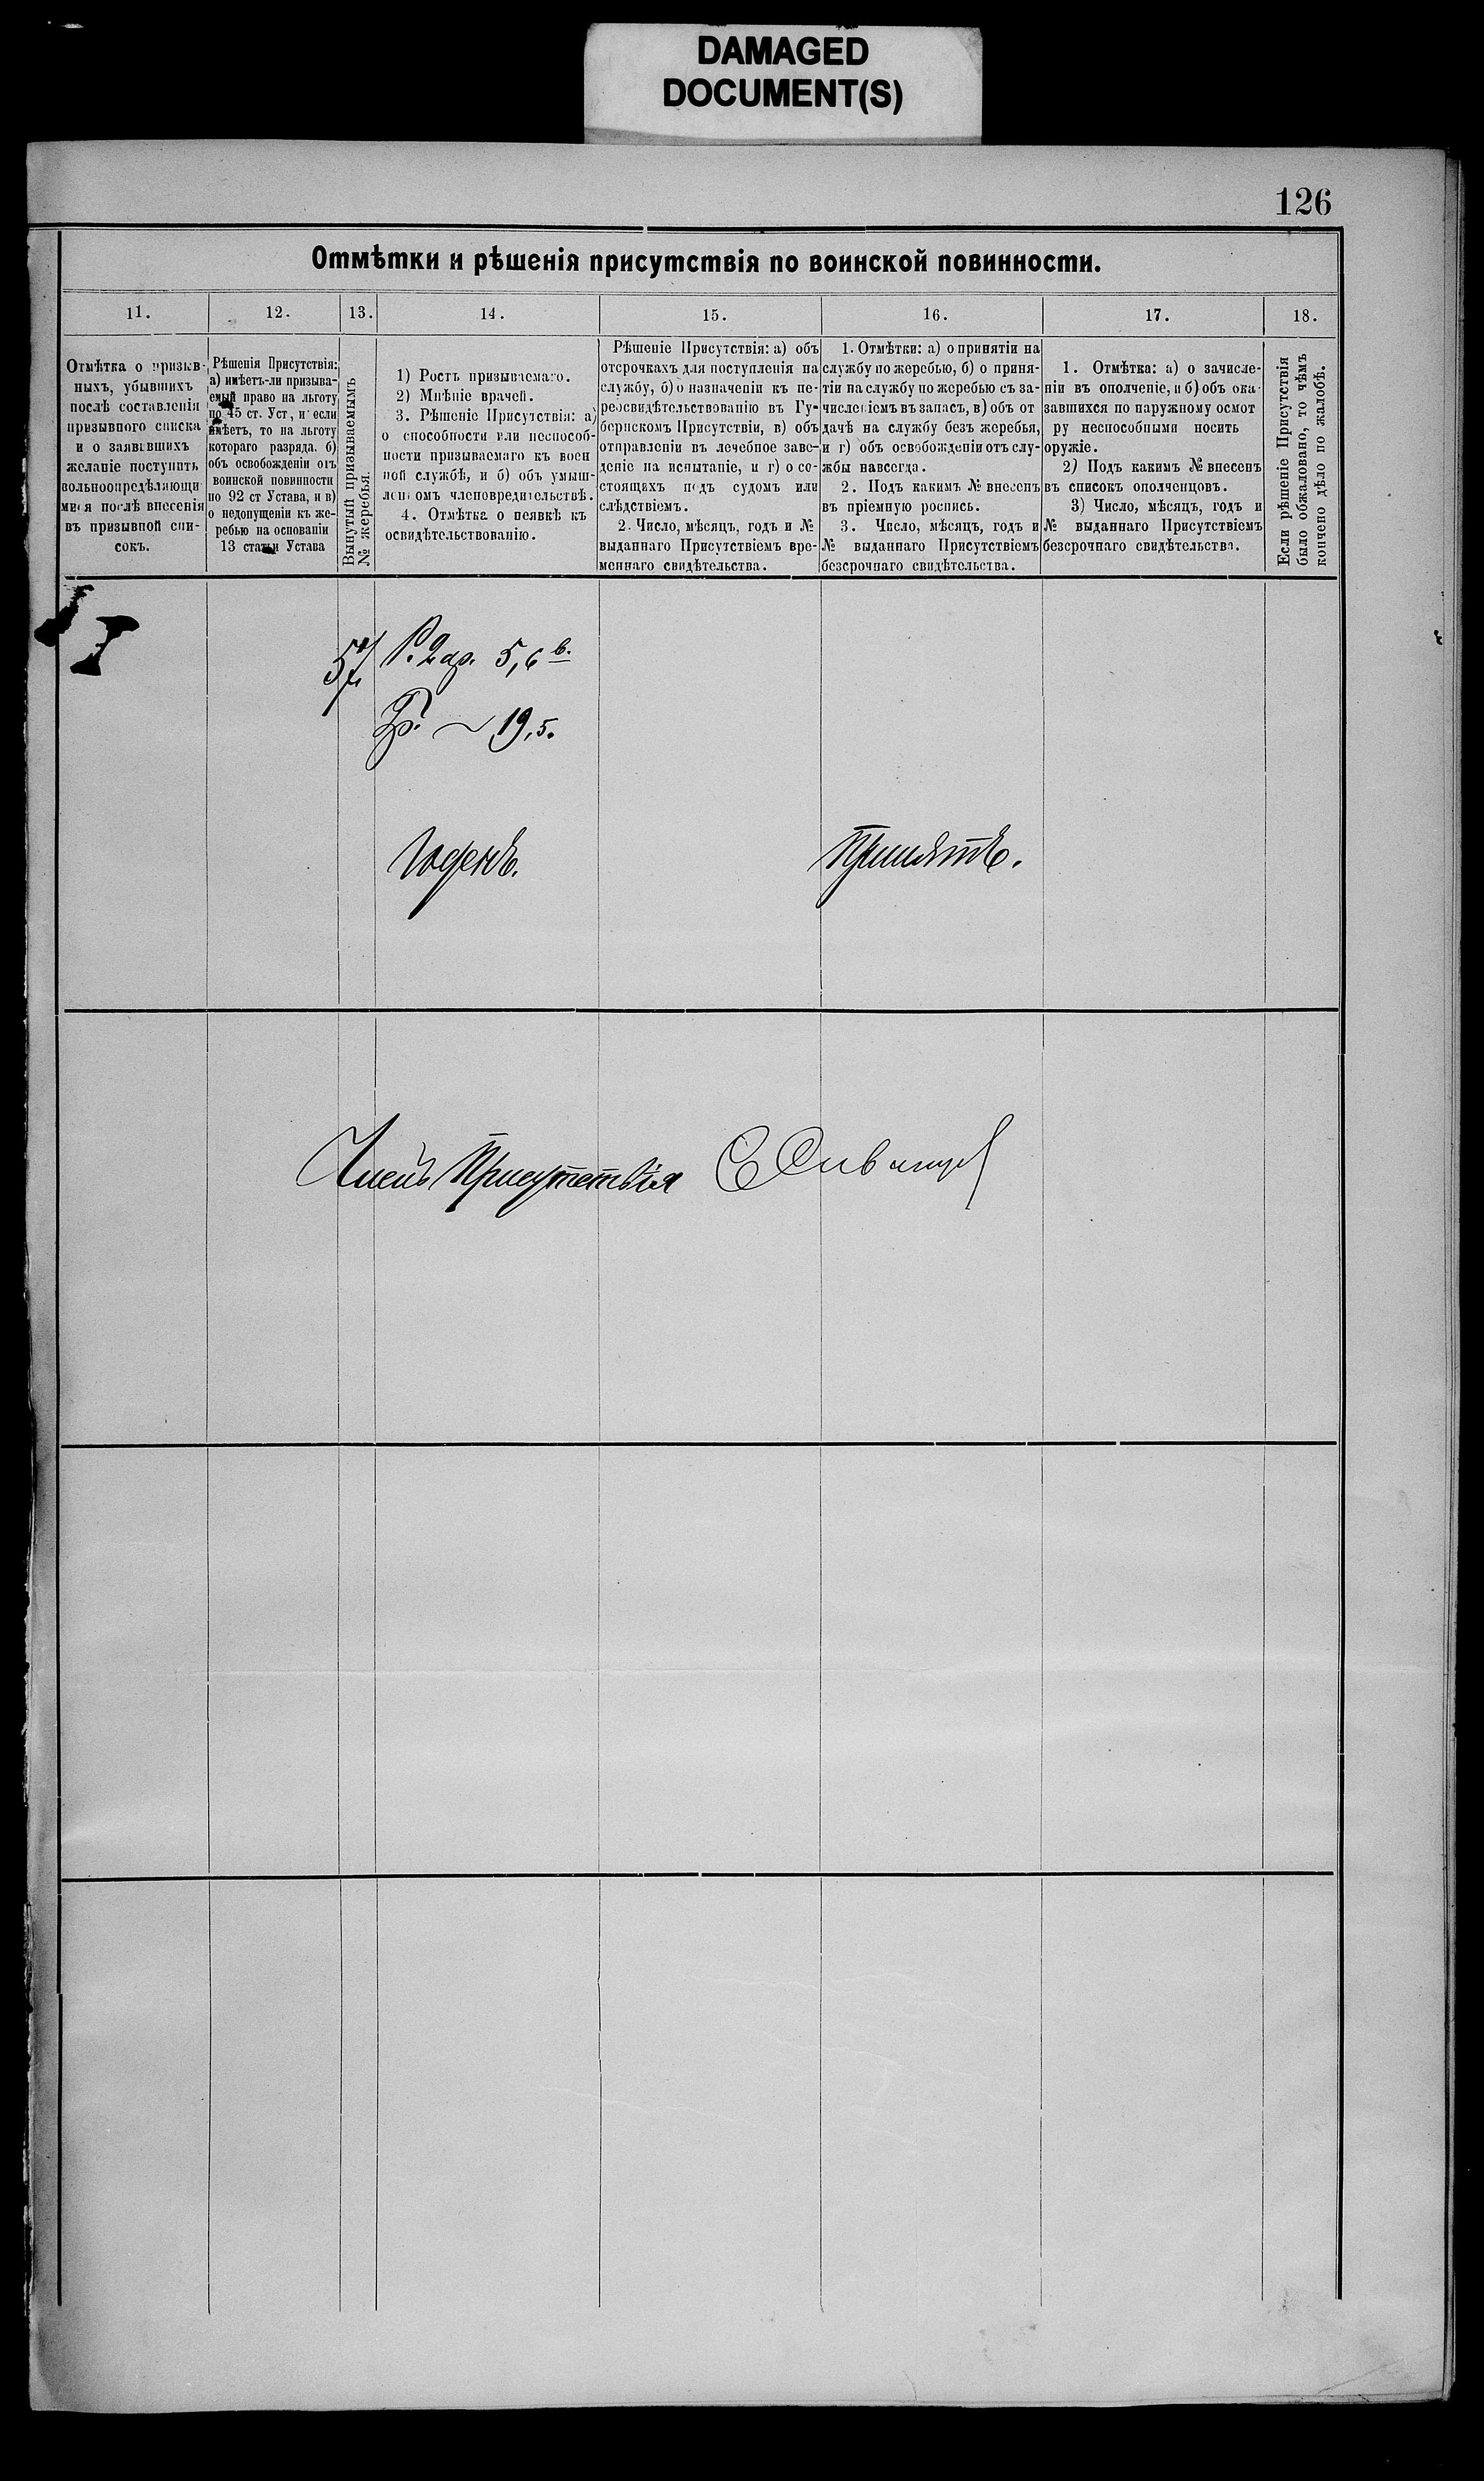 DAMAGED
DOCUMENT(S)
126
Отмѣтки и рѣшенія присутствія по воинской повинности.
11. 12. 13. 14. 15. 16. 17. 18.
Отмѣтка о призыв-
ныхъ, убывшихъ
послѣ составленія
призывного списка
и о заявившихъ
желаніе поступить
вольноопредѣляющи
мися послѣ внесенія
въ призывной спи-
сокъ.
Рѣшенія Присутствія:
а) имѣетъ-ли призыва-
емый право на льготу
по 45 ст. Уст, и если
имѣетъ, то на льготу
котораго разряда. б)
объ освобожденіи отъ
воинской повинности
по 92 ст Устава, и в)
о недопущеніи къ же-
ребью на основаніи
13 статьи Устава
Вынутый призываемымъ
№ жеребья.
1) Ростъ призываемаго.
2) Мнѣніе врачей.
3. Рѣшеніе Присутствія: а)
о способности или неспособ-
ности призываемаго къ воен
ной службѣ, и б) объ умыш-
ленномъ членовредительствѣ.
4. Отмѣтка о неявкѣ къ
освидѣтельствованію.
Рѣшеніе Присутствія: а) объ
отсрочкахъ для поступленія на
службу, б) о назначеніи къ пе-
реосвидѣтельствованію въ Гу-
бернскомъ Присутствіи, в) объ
отправленіи въ лечебное заве-
деніе на испытаніе, и г) о со-
стоящихъ подъ судомъ или
слѣдствіемъ.
2. Число, мѣсяцъ, годъ и №
выданнаго Присутствіемъ вре-
меннаго свидѣтельства.
1. Отмѣтки: а) о принятіи на
службу по жеребью, б) о приня-
тіи на службу по жеребью съ за-
численіемъ въ запасъ, в) объ от
дачѣ на службу безъ жеребья,
и г) объ освобожденіи отъ слу-
жбы навсегда.
2. Подъ какимъ № внесенъ
въ пріемную роспись.
3. Число, мѣсяцъ, годъ и
№ выданнаго Присутствіемъ
безсрочнаго свидѣтельства.
1. Отмѣтка: а) о зачисле-
ніи въ ополченіе, и б) объ ока-
завшихся по наружному осмот
ру неспособными носить
оружіе.
2) Подъ какимъ № внесенъ
въ списокъ ополченцовъ.
3) Число, мѣсяцъ, годъ и
№ выданнаго Присутствіемъ
безсрочнаго свидѣтельства.
Если рѣшеніе Присутствія
было обжаловано, то чѣмъ
кончено дѣло по жалобѣ.
Р. 2 ар. 5,6 в.
Гр. ~ 19,5.
Годенъ. Принятъ.
Членъ Присутствія